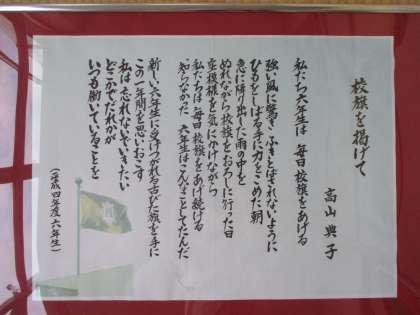 校旗を掲げて
高山典子
私たち六年生は 毎日 校旗をあげる
強い風に驚き ふきとばされないように
ひもをしばる手に力をこめた朝
急に降り出した雨の中を
ぬれながら校旗をおろしに行った日
空模様を気にかけながら
私たちは毎日校旗をあげ続ける
知らなかった 六年生はこんなことしてたんだ
新しい六年生に受けつがれる古びた旗を手に
この一年間を思いおこす
私は忘れないでいきたい
どこかでだれかが
いつも働いていることを
(平成四年度六年生)